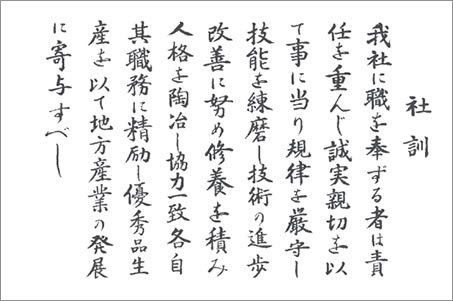 社訓
我社に職を奉ずる者は責
任を重んじ誠実親切を以
て事に当り規律を厳守し
技能を練磨し技術の進歩
改善に努め修養を積み
人格を陶冶し協力一致各自
其職務に精励し優秀品生
産を以て地方産業の発展
に寄与すべし